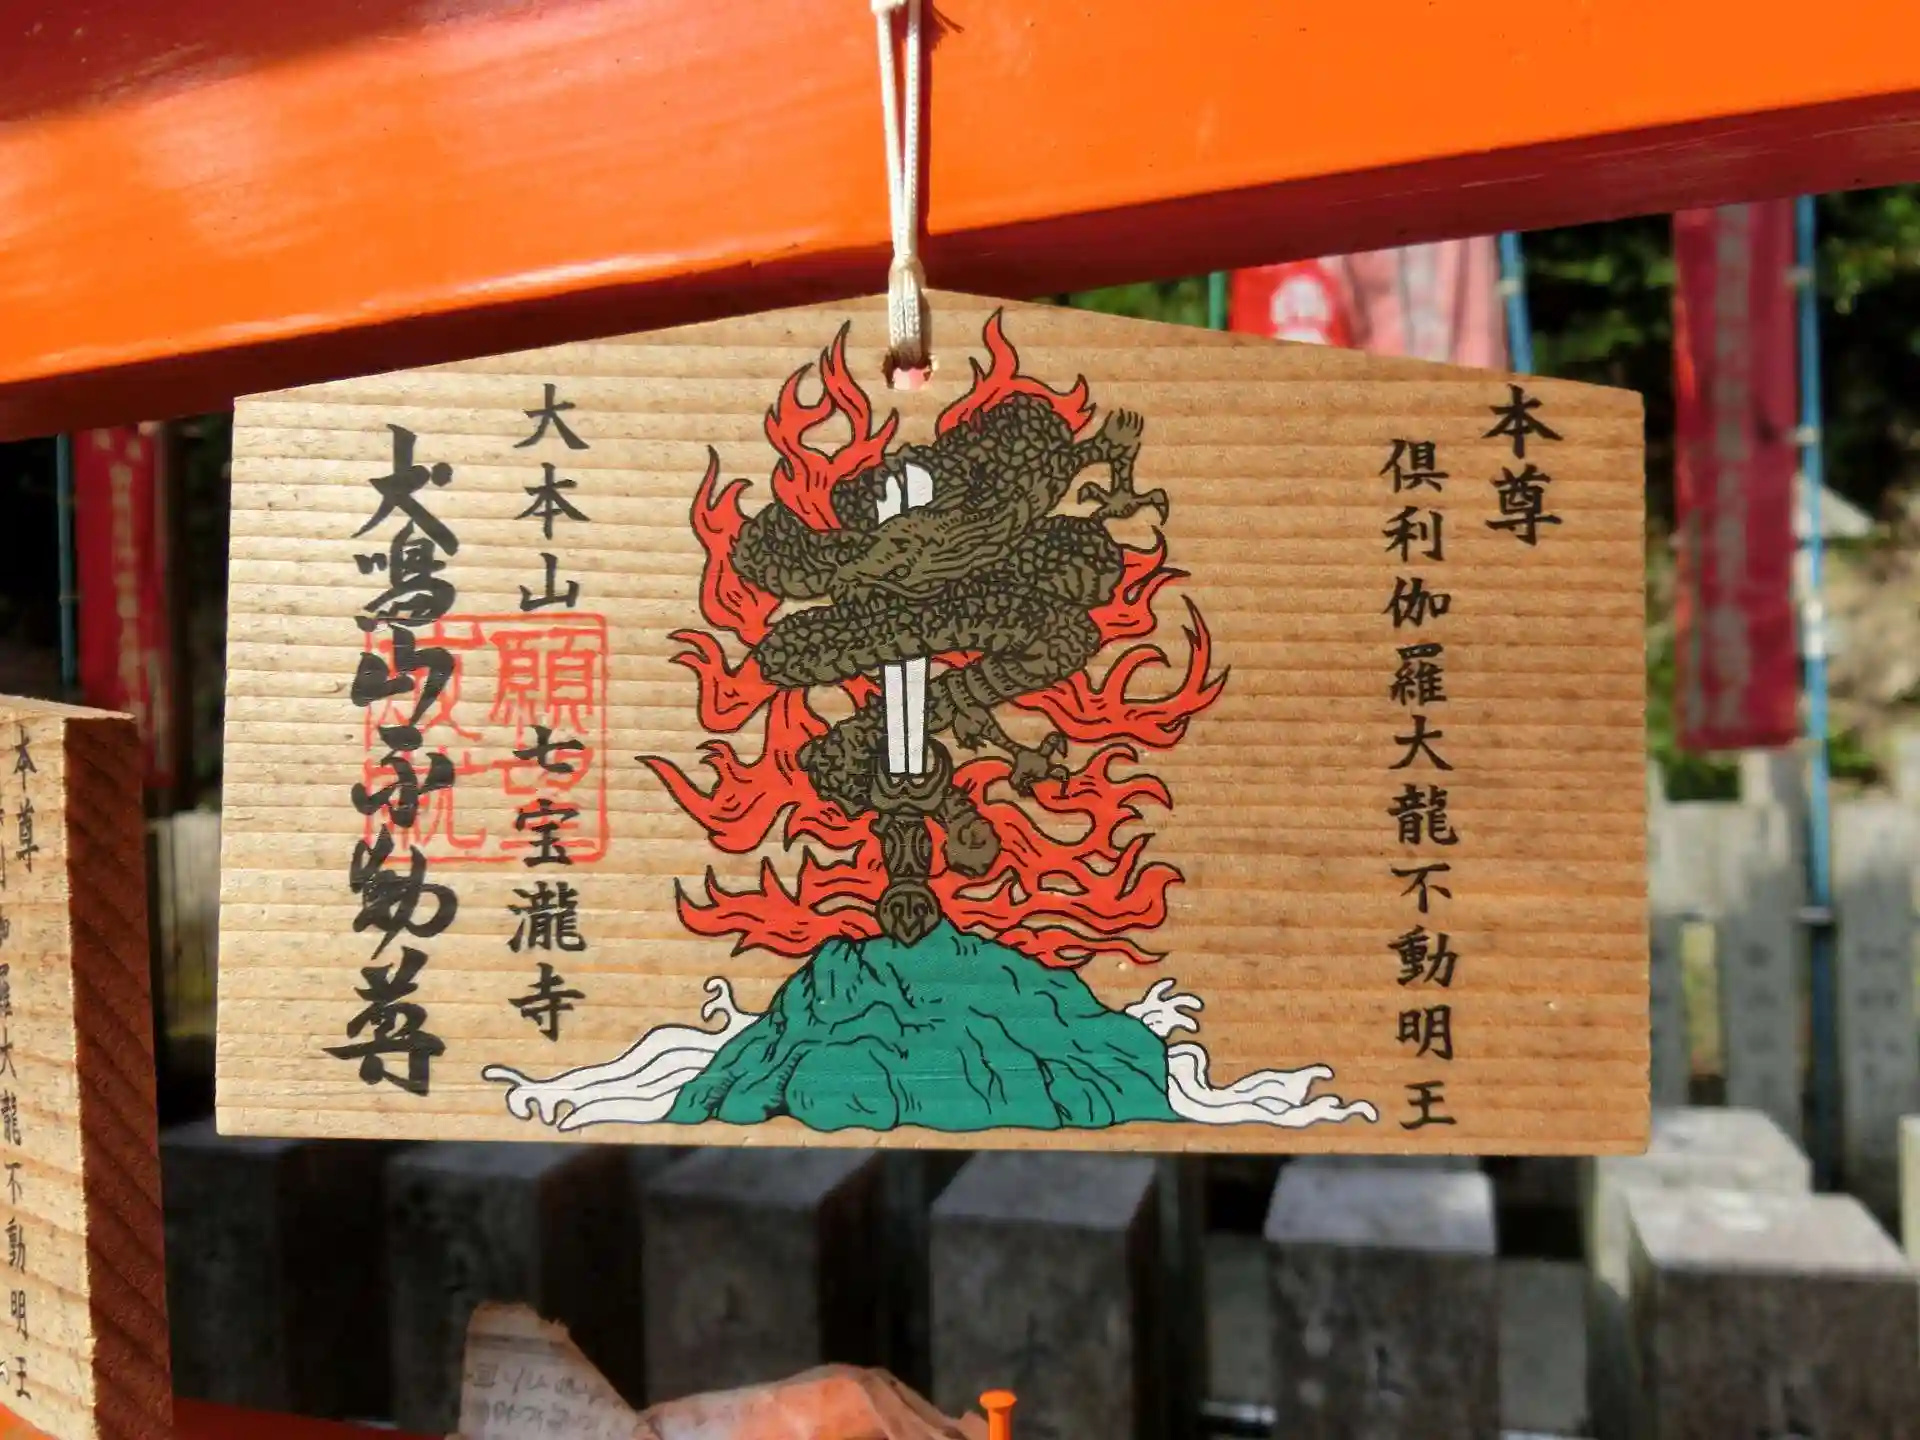 本尊
俱利伽羅大龍不動明王
大本山
七宝瀧寺
犬鳴山不動尊
願望
成就
本尊
大龍不動明王